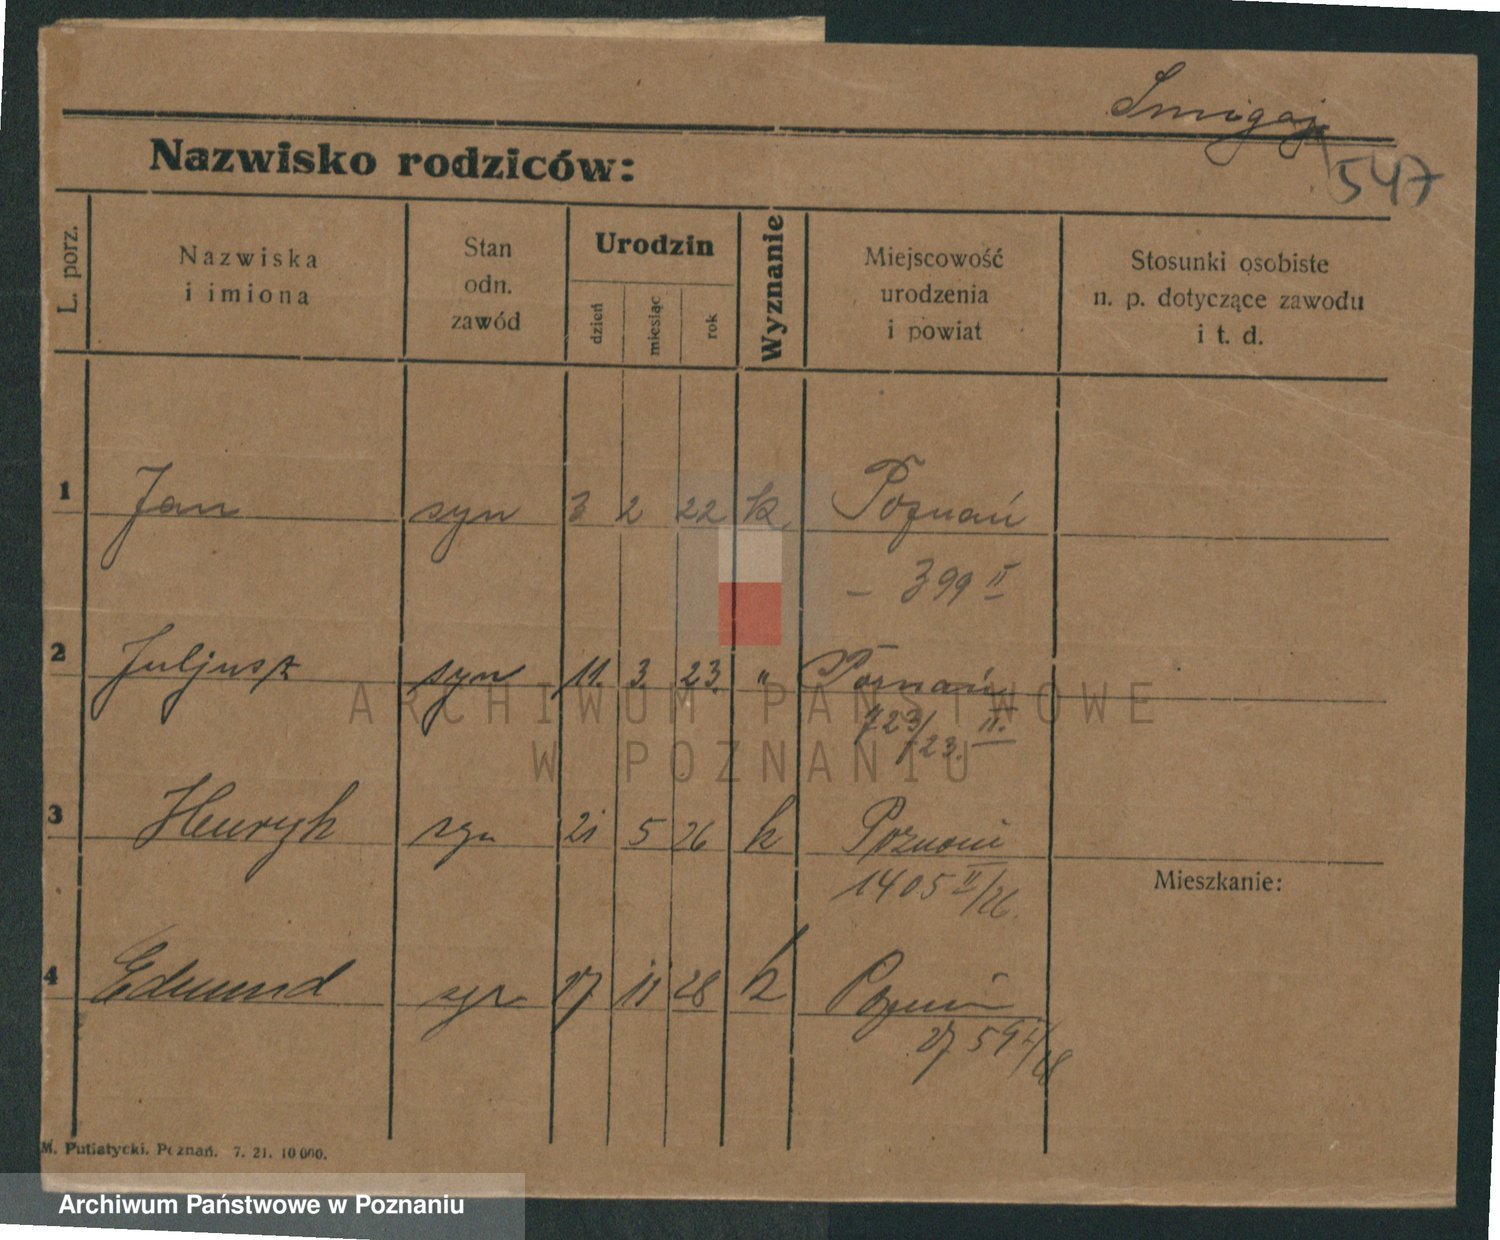 Smigaj
547
Nazwisko rodziców:
L. porz.
Nazwiska
i imiona
Stan
odn.
zawód
Urodzin
dzień
miesiąc
rok
Wyznanie
Miejscowość
urodzenia
i powiat
Stosunki osobiste
n. p. dotyczące zawodu
i t. d.
1 Jan syn 3 2 22 k Poznań
– 399 II
2 Juljusz syn 11. 3. 23. " Poznań
723/23. II.
3 Henryk syn 21 5 26 k Poznań
1405 II/26.
Mieszkanie:
4 Edmund syn 27 11 28 k Poznań
/28
M. Putiatycki. Poznań. 7. 21. 10 000.
ARCHIWUM PAŃSTWOWE
W POZNANIU
Archiwum Państwowe w Poznaniu